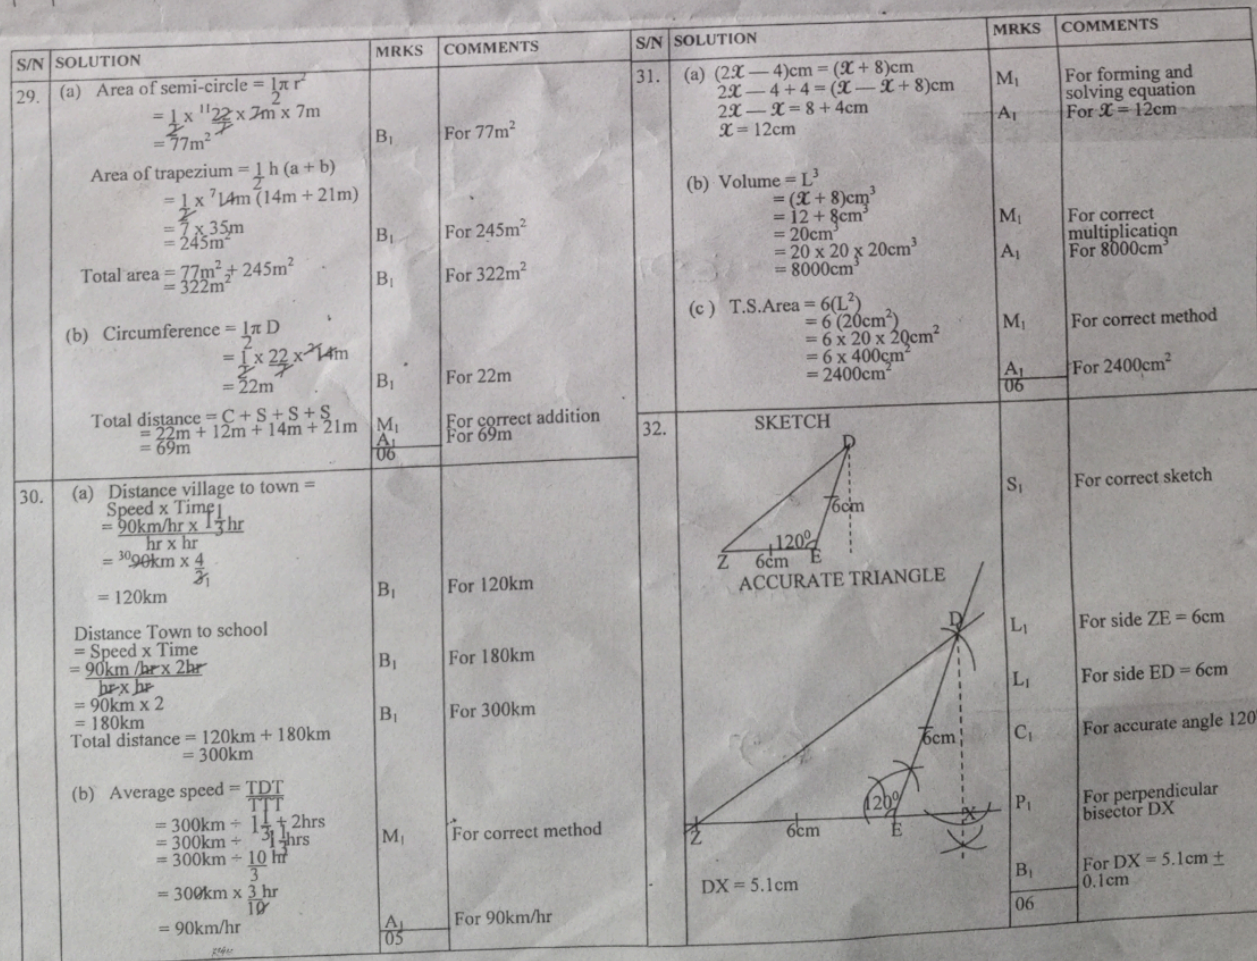 S/N SOLUTION MRKS COMMENTS
29. (a) Area of semi-circle = 1/2 π r²
= 1/2 x ¹¹22/7 x 7m x 7m
= 77m² B₁ For 77m²
Area of trapezium = 1/2 h (a + b)
= 1/2 x ⁷14m (14m + 21m)
= 7 x 35m
= 245m² B₁ For 245m²
Total area = 77m² + 245m²
= 322m² B₁ For 322m²
(b) Circumference = 1/2 π D
= 1/2 x 22/7 x ²14m
= 22m B₁ For 22m
Total distance = C + S + S + S
= 22m + 12m + 14m + 21m M₁ For correct addition
= 69m A₁ For 69m
06
30. (a) Distance village to town =
Speed x Time
= 90km/hr x 1 1/3 hr
hr x hr
= ³⁰90km x 4/3₁
= 120km B₁ For 120km
Distance Town to school
= Speed x Time
= 90km /hr x 2hr B₁ For 180km
hr x hr
= 90km x 2
= 180km B₁ For 300km
Total distance = 120km + 180km
= 300km
(b) Average speed = TDT/TTT
= 300km ÷ 1 1/3 + 2hrs
= 300km ÷ 3 1/3 hrs M₁ For correct method
= 300km ÷ 10/3 hr
= 300km x 3/10 hr
= 90km/hr A₁ For 90km/hr
05
S/N SOLUTION MRKS COMMENTS
31. (a) (2x — 4)cm = (x + 8)cm M₁ For forming and
2x — 4 + 4 = (x — x + 8)cm solving equation
2x — x = 8 + 4cm A₁ For x = 12cm
x = 12cm
(b) Volume = L³
= (x + 8)cm³
= 12 + 8cm³ M₁ For correct
= 20cm³ multiplication
= 20 x 20 x 20cm³ A₁ For 8000cm³
= 8000cm³
(c ) T.S.Area = 6(L²)
= 6 (20cm²) M₁ For correct method
= 6 x 20 x 20cm²
= 6 x 400cm²
= 2400cm² A₁ For 2400cm²
06
32. SKETCH
D
S₁ For correct sketch
6cm
120⁰
Z 6cm E
ACCURATE TRIANGLE
D L₁ For side ZE = 6cm
L₁ For side ED = 6cm
6cm C₁ For accurate angle 120⁰
120⁰ P₁ For perpendicular
bisector DX
Z 6cm E X
DX = 5.1cm B₁ For DX = 5.1cm ±
0.1cm
06